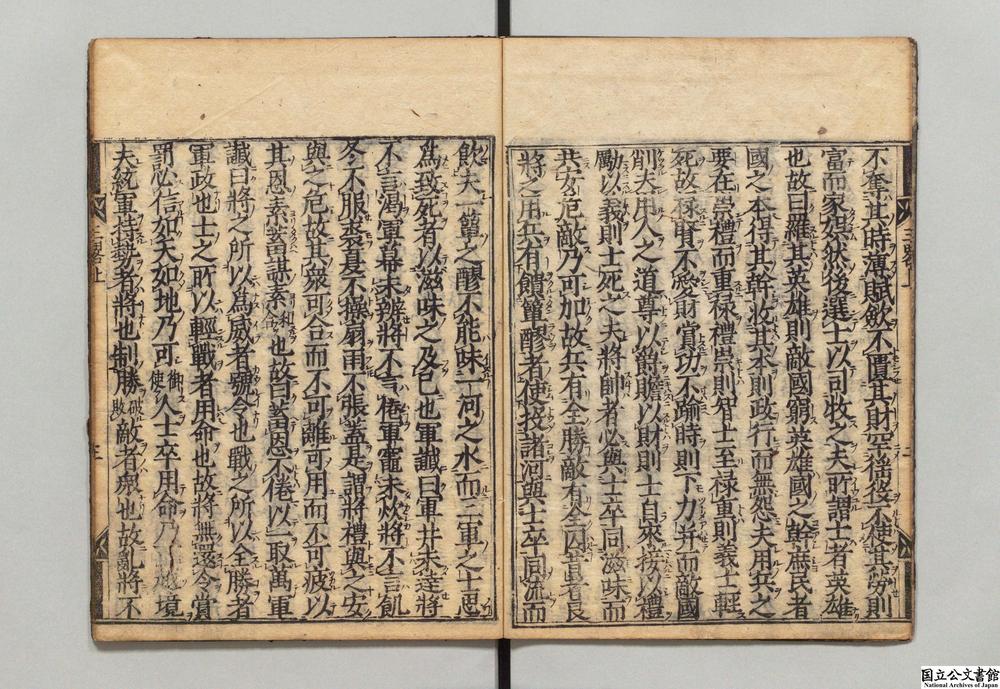 不奪其時薄賦歛不匱其財罕徭役不使其勞則
國富而家娯然後選士以司牧之夫所謂士者英雄
也故曰羅其英雄則敵國窮英雄國之幹庶民者
國之本得其幹收其本則政行而無怨夫用兵之
要在崇禮而重禄禮崇則智士至禄重則義士輕
死故禄賢不愛財賞功不踰時則下力并而敵國
削夫用人之道尊以爵贍以財則士自來接以禮
勵以義則士死之夫將帥者必與士卒同滋味而
共安危敵乃可加故兵有全勝敵有全囚昔者良
將之用兵有饋簞醪者使投諸河與士卒同流而
飲夫一簞之醪不能味一河之水而三軍之士思
爲致死者以滋味之及己也軍讖曰軍井未達將
不言渴軍幕未辨將不言倦軍竈未炊將不言飢
冬不服裘夏不操扇雨不張蓋是謂將禮與之安
與之危故其衆可合而不可離可用而不可疲以
其恩素蓄謀素和也故曰蓄恩不倦以一取萬軍
讖曰將之所以爲威者號令也戰之所以全勝者
軍政也士之所以輕戰者用命也故將無還令賞
罰必信如天如地乃可御使人士卒用命乃可越境
夫統軍持勢者將也制勝破敗敵者衆也故亂將不
国立公文書館
National Archives of Japan